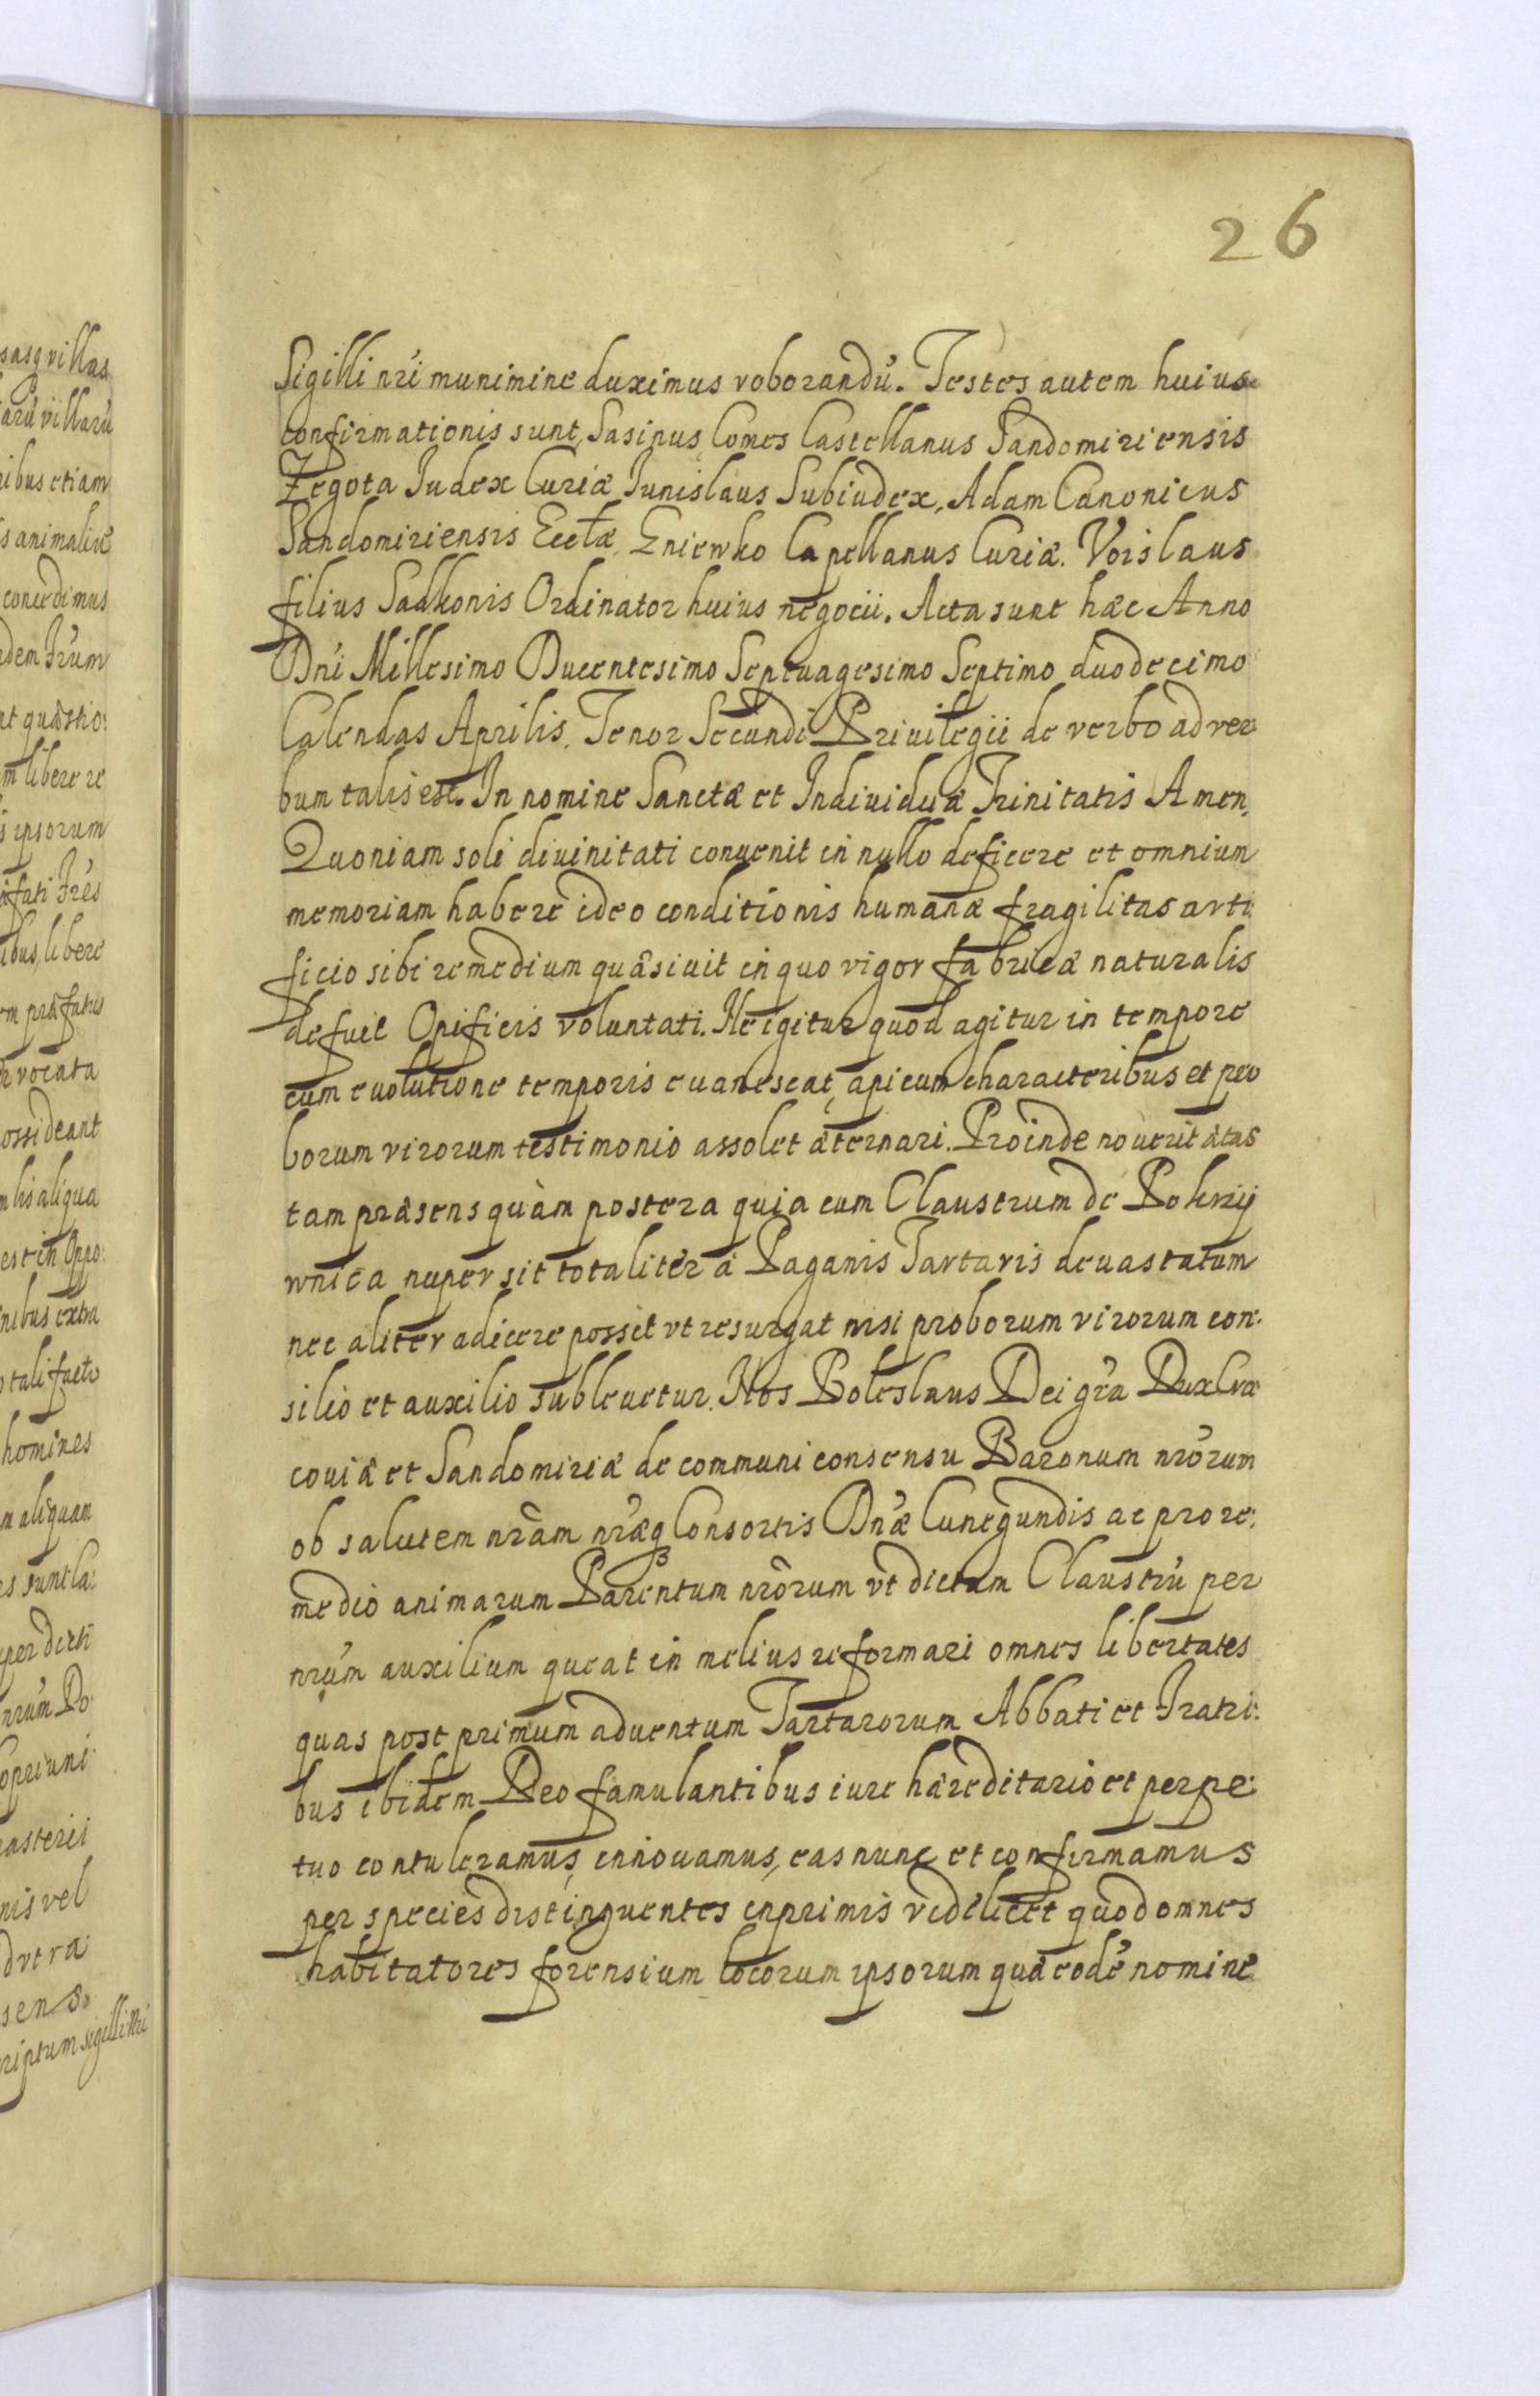 26
Sigilli nr̃i munimine duximus roborandũ. Testes autem huius
confirmationis sunt, Sasinus Comes Castellanus Sandomiriensis
Zegota Iudex Curiæ Iunislaus Subiudex, Adam Canonicus
Sandomiriensis Ecctæ, Gniewko Capellanus Curiæ. Voislaus
filius Sadkonis Ordinator huius negocii. Acta sunt hæc Anno
Dnĩ Millesimo Ducentesimo Septuagesimo Septimo duodecimo
Calendas Aprilis. Tenor Secundi Priuilegii de verbo ad ver
bum talis est. In nomine Sanctæ et Indiuiduæ Trinitatis Amen.
Quoniam soli diuinitati conuenit in nullo deficere et omnium
memoriam habere ideo conditionis humanæ fragilitas arti
ficio sibi remedium quæsiuit in quo vigor fabricæ naturalis
defuit Opificis voluntati. Ne igitur quod agitur in tempore
cum euolutione temporis euanescat, apicum characteribus et pro
borum virorum testimonio assolet æternari. Proinde nouerit ætas
tam præsens quàm postera quia cum Claustrum de Pokrzy
wnica nuper sit totaliter à Paganis Tartaris deuastatum
nec aliter adicere possit vt resurgat nisi proborum virorum con:
silio et auxilio subleuetur. Nos Boleslaus Dei grã Dux Cra
couiæ et Sandomiriæ de communi consensu Baronum nrõrum
ob salutem nrãm nrãeq3 Consortis Dnæ̃ Cunegundis ac pro re:
medio animarum Parentum nrõrum vt dictum Claustrũ per
nrũm auxilium queat in melius reformari omnes libertates
quas post primum aduentum Tartarorum Abbati et Fratri:
bus ibidem Deo famulantibus iure hæreditario et perpe:
tuo contuleramus, innouamus, eas nunc et confirmamus
per species distinguentes inprimis videlicet quod omnes
habitatores forensium locorum ipsorum quæ eodẽ nomine